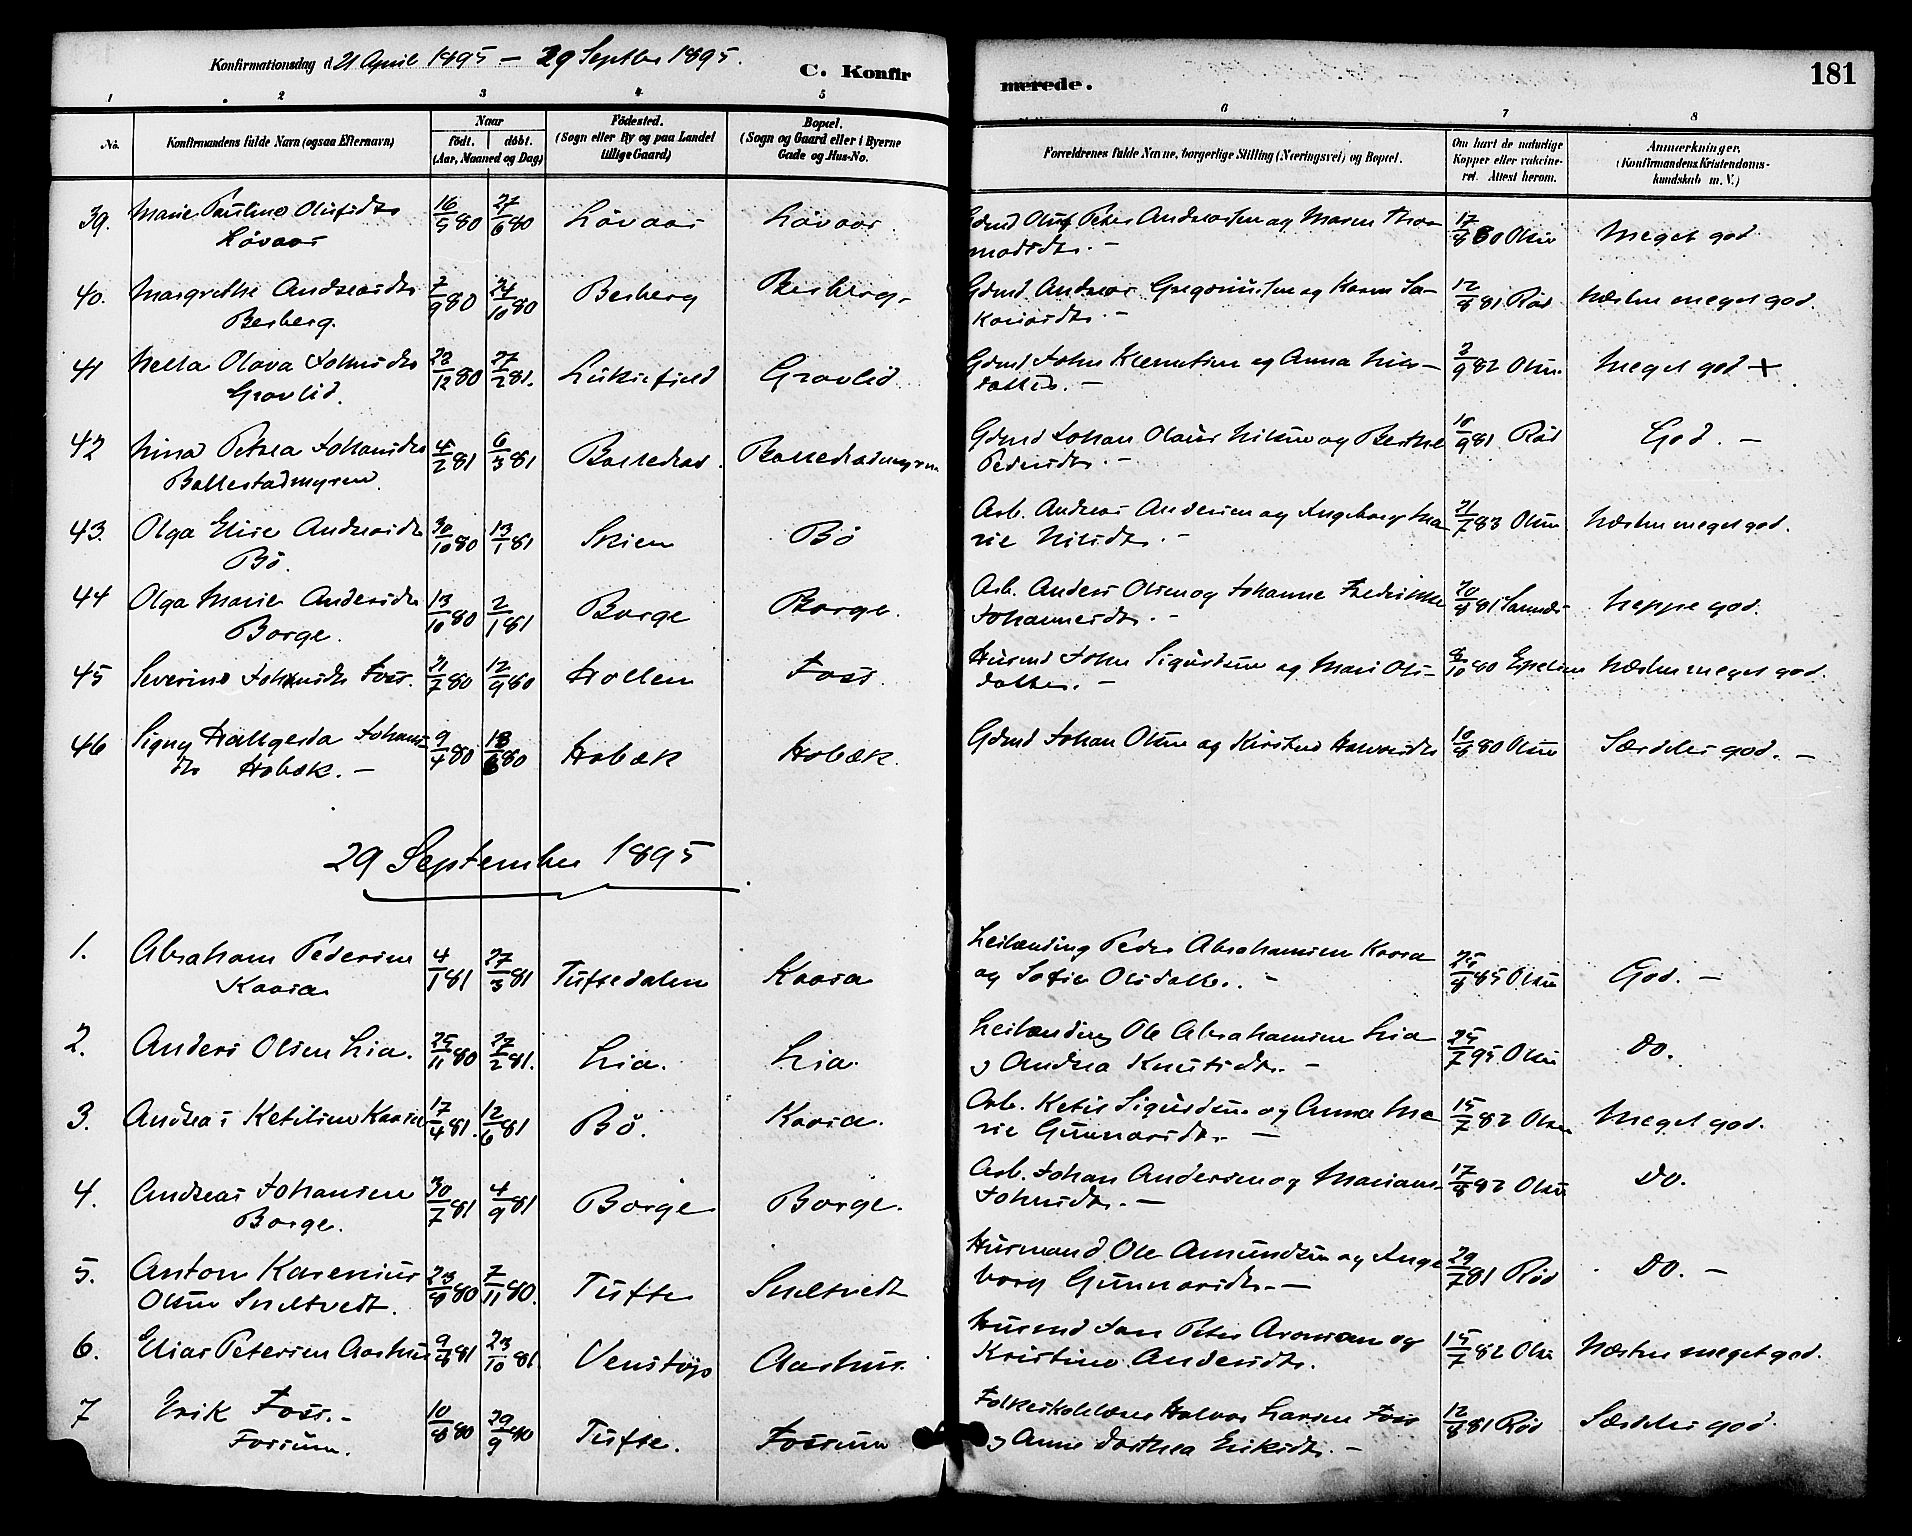 Konfirmationsdag d. 21 April 1895 — 29 Septbr 1895.
C. Konfirmerede.
181
1 2 3 4 5 6 7 8
No. Konfirmandens fulde Navn (ogsaa Efternavn) Naar födt. döbt. (Aar, Maaned og Dag) Födested. (Sogn eller By og paa Landet tillige Gaard) Bopæl. (Sogn og Gaard eller i Byerne Gade og Hus-No. Forældrenes fulde Navne, borgerlige Stilling (Næringsvei) og Bopæl. Om havt de naturlige Kopper eller vaccineret. Attest herom. Anmærkninger. (Konfirmandens Kristendomskundskab m. V.)
39. Marie Pauline Olufsdtr 16/5 80 27/6 80 Løvaas Løvaas Gdmd Oluf Peter Andreassen og Maren Thor- 17/8 80 Olsen Meget god
Løvaas modsdtr. —
40. Margrethe Andreasdtr 7/9 80 24/10 80 Besberg Besberg Gdmd Andreas Gregoriussen og Karen Sa- 12/8 81 Rød Næsten meget god.
Besberg. kariasdtr. —
41 Nella Olava Johnsdtr 22/12 80 27/2 81. Gravlid. Gdmd John Klemetsen og Anna Niels- 3/9 82 Olsen Meget god +
Gravlid. datter. —
42 Nina Petrea Johansdtr 4/2 81 6/3 81 Ballestad. Ballestadmyren Gdmd Johan Olaus Nilsen og Berthe 10/9 81 Rød God. —
Ballestadmyren. Pedersdtr. —
43. Olga Elise Andreasdtr 30/10 80 13/1 81 Skien Bö Arb. Andreas Andersen og Ingeborg Ma- 21/7 83 Olsen Næsten meget god.
Bö. rie Nilsdtr. —
44 Olga Marie Andersdtr 13/10 80 2/1 81 Borge Borge. Arb. Anders Olsen og Johanne Fredrikke 20/8 81 Neppe god.
Borge. Johannesdtr. —
45 Severine Johnsdtr Foss. 21/7 80 12/9 80 Hollen Foss. Husmd John Sigurdsen og Mari Ols- 8/10 80 Næsten meget god.
datter. —
46 Signy Hallgerda Johans- 9/4 80 13/6 80 Hobæk Hobæk. Gdmd Johan Olsen og Kirstine Halvorsdtr 10/8 80 Olsen Særdeles god. —
dtr Hobæk. —
29 September 1895.
1. Abraham Pedersen 4/1 81 27/3 81 Tuftedalen Kaasa Leilænding Peder Abrahamsen Kaasa 25/8 85 Olsen God. —
Kaasa og Sofie Olsdatter. —
2. Anders Olsen Lia. 25/11 80 27/2 81. Lia. Lia. Leilænding Ole Abrahamsen Lia 25/7 95 Olsen Do.
og Andrea Knutsdtr. —
3. Andreas Ketilsen Kaasa 17/4 81. 12/6 81 Bö. Kaasa. Arb. Ketil Sigurdsen og Anna Ma- 15/7 82 Olsen Meget god.
rie Gunnarsdtr. —
4. Andreas Johansen 30/7 81 4/9 81 Borge Borge. Arb. Johan Andersen og Mariane 17/8 82 Olsen Do.
Borge. Johnsdtr. —
5. Anton Karenius 23/8 80 7/11 80. Tufte Sneltvedt Husmand Ole Amundsen og Inge- 29/7 81 Rød Do. —
Olsen Sneltvedt. borg Gunnarsdtr. —
6. Elias Petersen Aarhus 9/8 81 23/10 81. Venstöp Aarhus. Husmd Jan Peter Aronsen og 15/7 82 Olsen Næsten meget god.
Kristine Andersdtr.
7 Erik Foss. — 10/8 80 29/9 80 Tufte. Fossum Folkeskolelærer Halvor Larsen Foss 12/8 81 Rød Særdeles god.
Fossum. og Anne Dorthea Eriksdtr. —